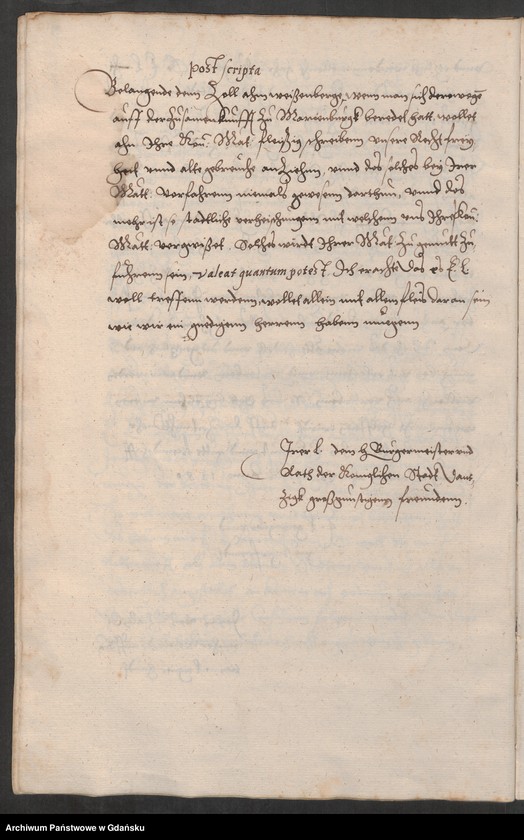 post scripta
Belangende dem Zoll ahm weissenberge, wenn man sich derwegen
auff der zusamenkunfft zu Marienburgk beredet hatt, wollet
ahn Ihre Kön: Mat: fleissig schreibenn unsere Recht frey-
heit unnd alte gebreuche anziehen, unnd das solches bey Irer
Matt: vorfahrenn niemals gewesenn darthun, unnd das
mehr ist, so stadtliche verheischungenn mit welchem uns Ihre Kön:
Matt: vergewissett. Solches wirdt Ihrer Mat: zu gemütt zu
führenn sein, valeat quantum potest. Ich erachte das es E. L.
woll treffenn werdenn, wollet allein mit allem fleis daran sein
wie wir ein gnedigenn herrenn habenn muegenn
Irer L. dem H. Bürgermeister und
Rath der Königlichen Stadt Dant-
zigk grossgünstigenn freundenn.
Archiwum Państwowe w Gdańsku